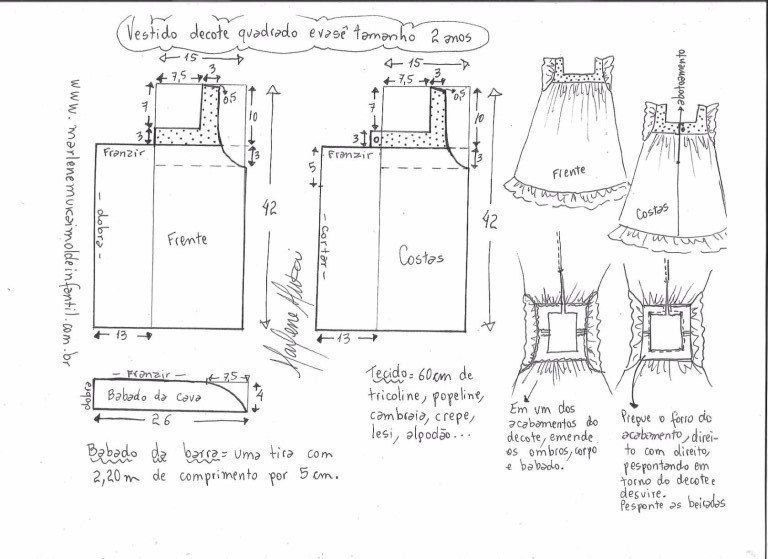 Vestido decote quadrado evasê tamanho 2 anos
www.marlenemukaimoldeinfantil.com.br
15
7,5
3
0,5
7
10
3
3
Franzir
dobra
Frente
42
13
15
7,5
3
0,5
7
10
3
3
5
Franzir
cortar
Costas
42
13
Marlene Mukai
Frente
abotoamento
Costas
Franzir
7,5
dobra
Babado da cava
4
26
Babado da barra = uma tira com
2,20m de comprimento por 5 cm.
Tecido = 60cm de
tricoline, popeline,
cambraia, crepe,
lesi, algodão...
Em um dos
acabamentos do
decote, emende
os ombros, corpo
e babado.
Pregue o forro do
acabamento, direi-
to com direito,
pespontando em
torno do decote e
desvire.
Pesponte as beiradas